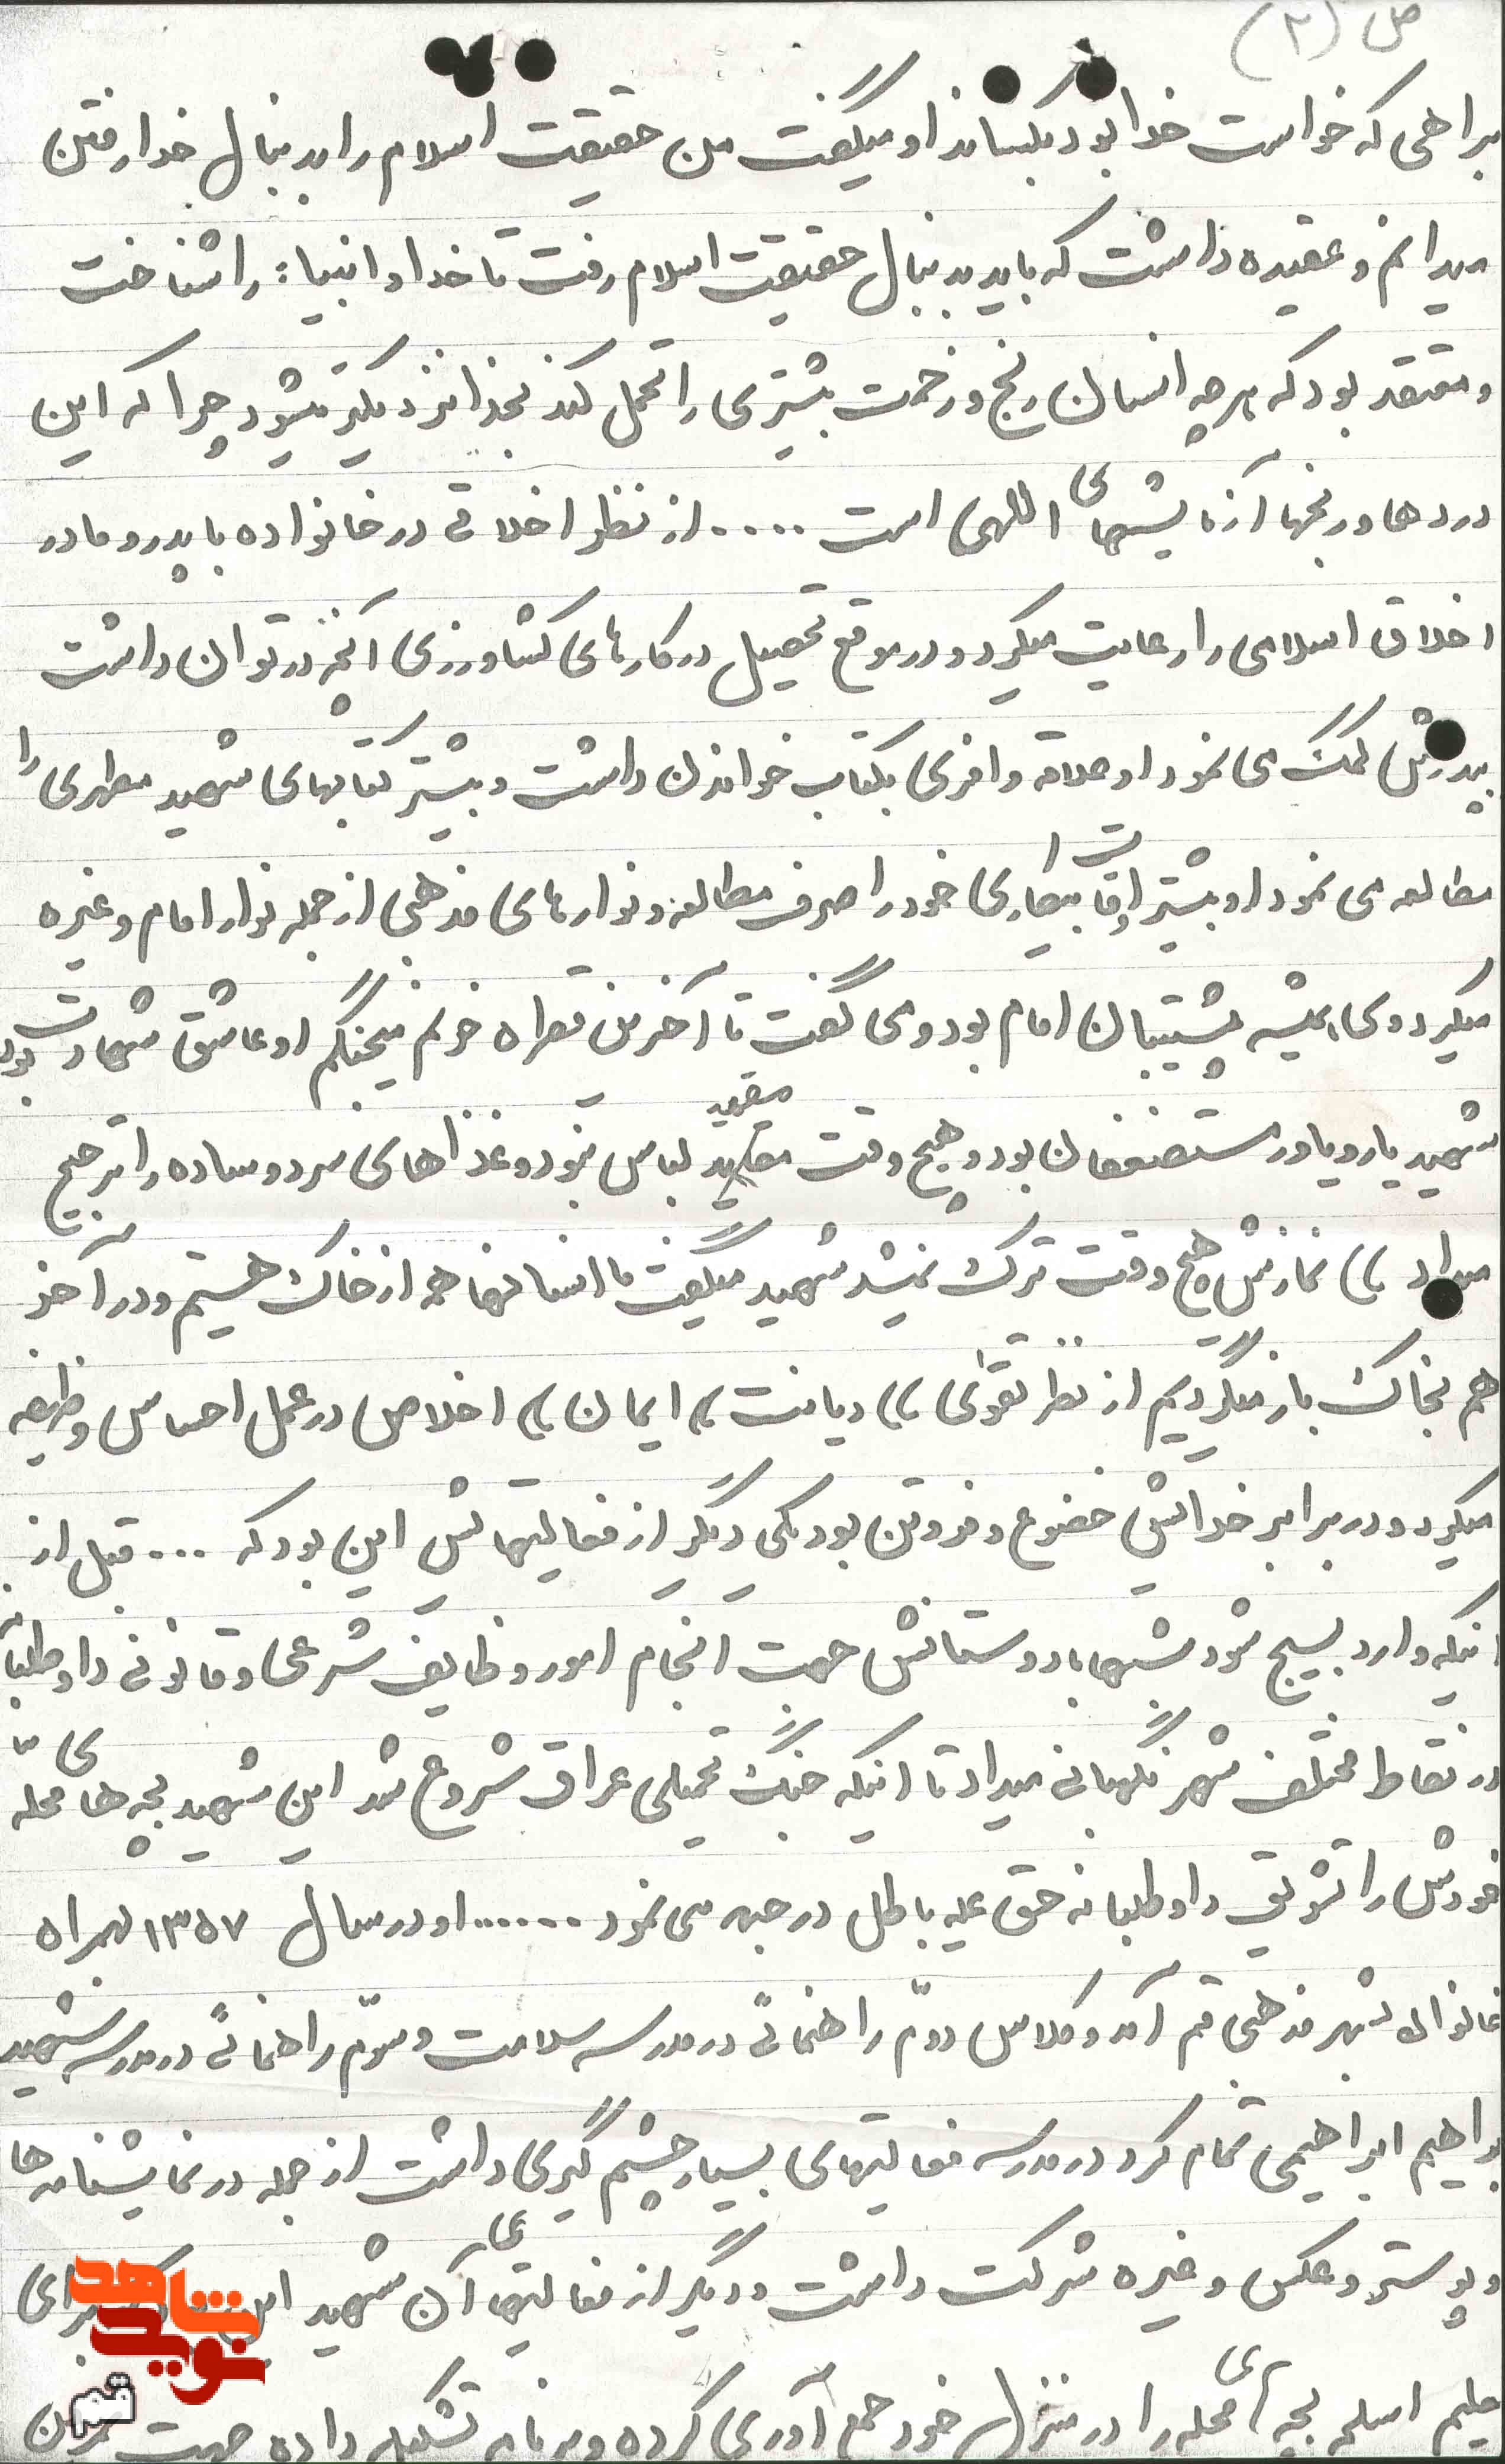 ص (۲)
براهی که خواست خدا بود بکساند او میگفت من حقیقت اسلام را بدنبال خدا رفتن
میدانم و عقیده داشت که باید بدنبال حقیقت اسلام رفت تا خدا و انبیاء را شناخت
و معتقد بود که هر چه انسان رنج و زحمت بیشتری را تحمل کند بخدا نزدیکتر میشود چرا که این
درد ها و رنجها آزمایشهای اللهی است ..... از نظر اخلاقی در خانواده با پدر و مادر
اخلاق اسلامی را رعایت میکرد و در موقع تحصیل در کارهای کشاورزی آنچه در توان داشت
بپدرش کمک می نمود او علاقه وافری بکتاب خواندن داشت و بیشتر کتابهای شهید مطهری را
مطالعه می نمود او بیشتر اوقات بیکاری خود را صرف مطالعه و نوارهای مذهبی از جمله نوار امام و غیره
میکرد وی همیشه پشتیبان امام بود و می گفت تا آخرین قطره خونم میجنگم او عاشق شهادت بود
شهید یار و یاور مستضعفان بود و هیچ وقت مقید لباس نبود و غذاهای سرد و ساده را ترجیح
میداد ٫٫ نمازش هیچ وقت ترک نمیشد شهید میگفت ما انسانها همه از خاک هستیم و در آخر
هم بخاک باز میگردیم از نظر تقوای ٫٫ دیانت ٫٫ ایمان ٫٫ اخلاص در عمل احساس وظیفه
میکرد و در برابر خدایش خضوع و فروتن بود یکی دیگر از فعالیتهایش این بود که ... قبل از
اینکه وارد بسیج شود شبها با دوستانش جهت انجام امور و ظایف شرعی و قانونی داوطلبانه
در نقاط مختلف شهر نگهبانی میداد تا اینکه جنگ تحمیلی عراق شروع شد این شهید بچه های محله
خودش را تشویق داوطلبانه حق علیه باطل در جبهه می نمود ...... او در سال ۱۳۵۷ بهمراه
خانواده بشهر مذهبی قم آمد و کلاس دوّم راهنمائی در مدرسه سلامت و سوّم راهنمائی در مدرسه شهید
ابراهیم ابراهیمی تمام کرد در مدرسه فعالیتهای بسیار چشم گیری داشت از جمله در نمایشنامه ها
و پوستر و عکس و غیره شرکت داشت و دیگر از فعالیتهای آن شهید این که برای
تعلیم اسلحه بچه های محله را در منزل خود جمع آوری کرده و برنامه تشکیل داده جهت تمرین
شاهد
نوید
قم